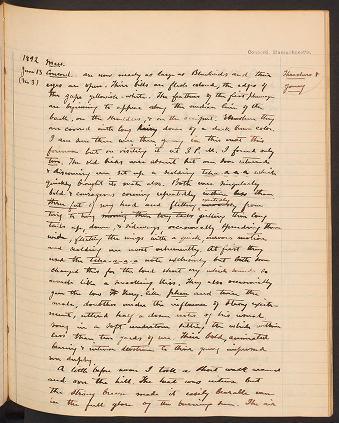 Concord, Massachusetts.
1892 Mass.
June 13 Concord. are now nearly as large as Bluebirds and their Thrashers &
(No 3) eyes are open. Their bills are flesh colored, the edges of young
the gape yellowish-white. The feathers of the first plumage
are beginning to appear along the median line of the
back, on the shoulders, & on the occiput. Elsewhere they
are covered with long down of a dark brown color.
I saw them there in the nest this
forenoon but on visiting it at 3 P. M. I found only
two. The old birds were absent but one soon returned
& discovering me set up a scolding which
quickly brought its mate also. Both were singularly
bold & courageous coming repeatedly within less than
three feet of my head and flitting from
twig to twig jerking their long
tails up, down, & sideways, occasionally spreading them
wide, flirting the wings with a quick, nervous motion
and scolding me most vehemently. At first they
used the note exclusively but both soon
changed this for the loud short cry which sounds so
much like a smacking kiss. They also occasionally
gave the low and twice the
male, doubtless under the influence of strong excite-
ment, uttered half a dozen notes of his usual
song in a soft undertone sitting the while within
less than two yards of me. Their bold, animated
bearing & intense devotion to their young impressed
me deeply.
A little before noon I took a short walk around
and over the hill. The heat was intense but
the strong breeze made it easily bearable even
in the full glare of the burning sun. The air